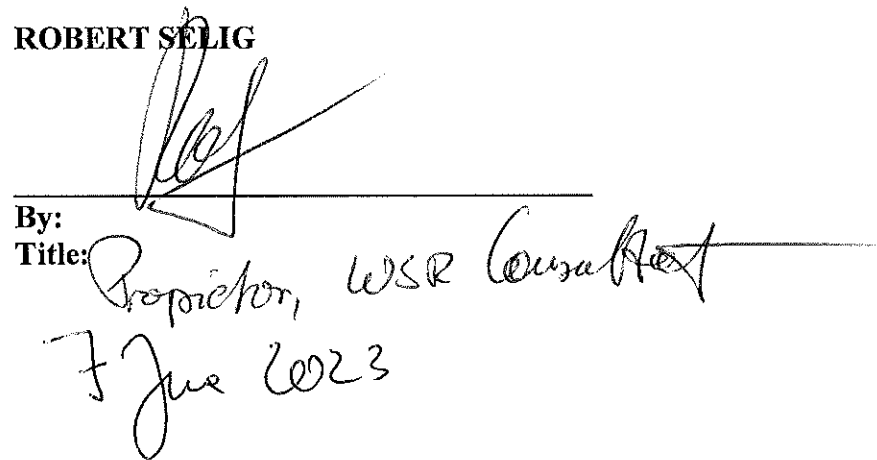 ROBERT SELIG
By:
Title: Propietor, WSR Consultant
7 June 2023